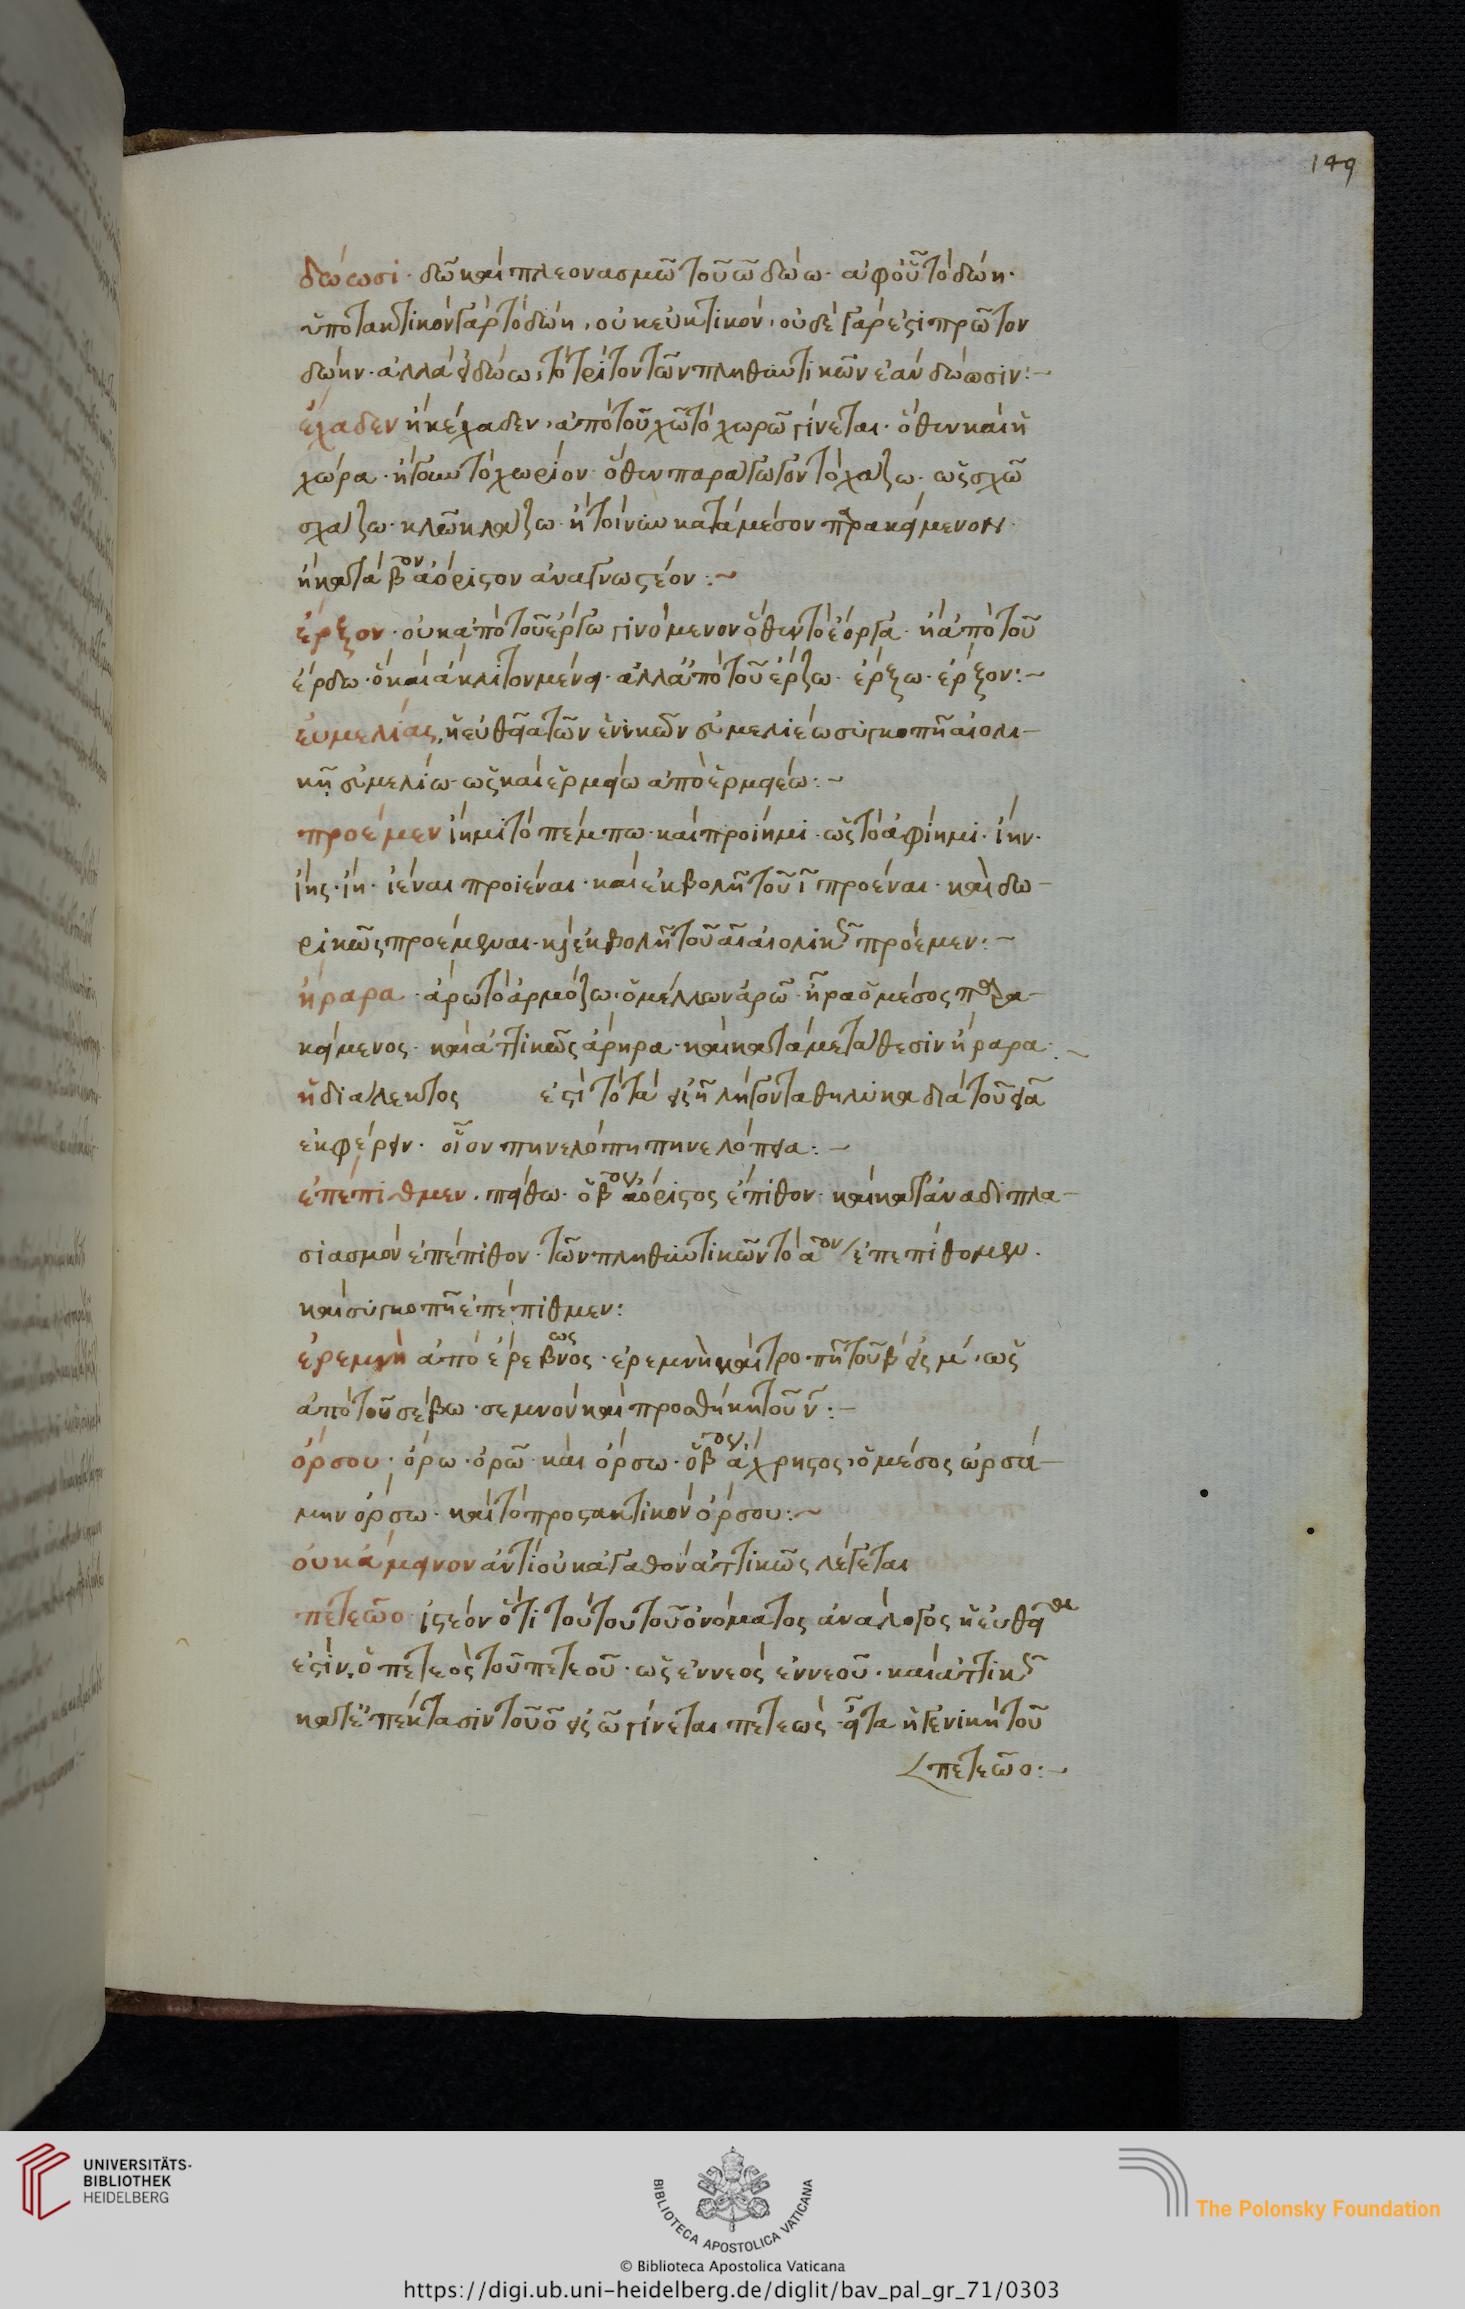 149
δώωσι· δῶ καὶ πλεονασμῶ τοῦ ω̄ δώω· ἀφ' οὗ τὸ δώη·
ὑποτακτικὸν γὰρ τὸ δώη, οὐκ εὐκτικόν, οὐδὲ γάρ ἐστι πρῶτον
δώην· ἀλλὰ δώω, τὸ τρίτον τῶν πληθυντικῶν ἐὰν δώωσιν:~
ἔχαδεν ἢ κέχαδεν, ἀπὸ τοῦ χῶ τὸ χωρῶ γίνεται· ὅθεν καὶ ἡ
χώρα· ἤγουν τὸ χωρίον· ὅθεν παράγωγον τὸ χάζω· ὡς σχῶ
σχάζω· κλῶ κλάζω· ἢ τοίνυν κατὰ μέσον παρακείμενον
ἢ κατὰ β̄ον ἀόριστον ἀναγνωστέον:~
ἔρξον· οὐκ ἀπὸ τοῦ ἔργω γινόμενον ὅθεν τὸ ἔοργα· ἢ ἀπὸ τοῦ
ἔρδω· ὃ καὶ ἄκλιτον μένει· ἀλλ' ἀπὸ τοῦ ἔρζω· ἔρξω· ἔρξον:~
ἐυμελίας, ἡ εὐθεῖα τῶν ἑνικῶν εὐμελιέω συγκοπῆ αἰολι-
κῆ εὐμελίω· ὡς καὶ ἑρμείω ἀπὸ ἑρμειέω:~
προέμεν ἵημι τὸ πέμπω· καὶ προίημι· ὡς τὸ ἀφίημι· ἵην·
ἵης· ἵη· ἱέναι προιέναι· καὶ ἐκβολῆ τοῦ ῑ προέναι· καὶ δω-
ρικῶς προέμεναι· καὶ ἐκβολῆ τοῦ αι αἰολικῶς προέμεν:~
ἤραρα· ἄρω τὸ ἁρμόζω· ὁ μέλλων ἀρῶ· ἦρα ὁ μέσος παρα-
κείμενος· καὶ ἀττικῶς ἄρηρα· καὶ κατὰ μετάθεσιν ἤραρα:~
ἡ διάλεκτος ἐστὶ τὸ τὰ εἰς η̄ λήγοντα θηλυκὰ διὰ τοῦ εᾱ
ἐκφέρειν· οἷον πηνελόπη πηνελόπεια:~
ἐπέπιθμεν· πείθω· ὁ β̄ος ἀόριστος ἔπιθον· καὶ κατ' ἀναδιπλα-
σιασμὸν ἐπέπιθον· τῶν πληθυντικῶν τὸ ᾱον ἐπεπίθομεν·
καὶ συγκοπῆ ἐπέπιθμεν:
ἐρεμνὴ ἀπὸ ἐρεβνός· ἐρεμνὴ καὶ τροπῆ τοῦ β εἰς μ, ὡς
ἀπὸ τοῦ σέβω· σεμνὸν καὶ προσθήκη τοῦ ν̄:~
ὄρσου· ὄρω· ὀρῶ· καὶ ὄρσω· ὁ β̄ος ἄχρηστος· ὁ μέσος ὠρσά-
μην ὄρσω· καὶ τὸ προστακτικὸν ὄρσου:~
οὐκ ἄμεινον ἀντὶ οὐκ ἀγαθὸν ἀττικῶς λέγεται
πετεῶο· ἰστέον ὅτι τούτου τοῦ ὀνόματος ἀνάλογος ἡ εὐθεῖα
ἐστὶν, ὁ πετεὸς τοῦ πετεοῦ· ὡς ἐννεὸς ἐννεοῦ· καὶ ἀττικῶς
κατ' ἐπέκτασιν τοῦ ο̄ εἰς ω̄ γίνεται πετεώς· εἶτα ἡ γενικὴ τοῦ
πετεῶο:~
UNIVERSITÄTS-
BIBLIOTHEK
HEIDELBERG
BIBLIOTECA APOSTOLICA VATICANA
The Polonsky Foundation
© Biblioteca Apostolica Vaticana
https://digi.ub.uni-heidelberg.de/diglit/bav_pal_gr_71/0303